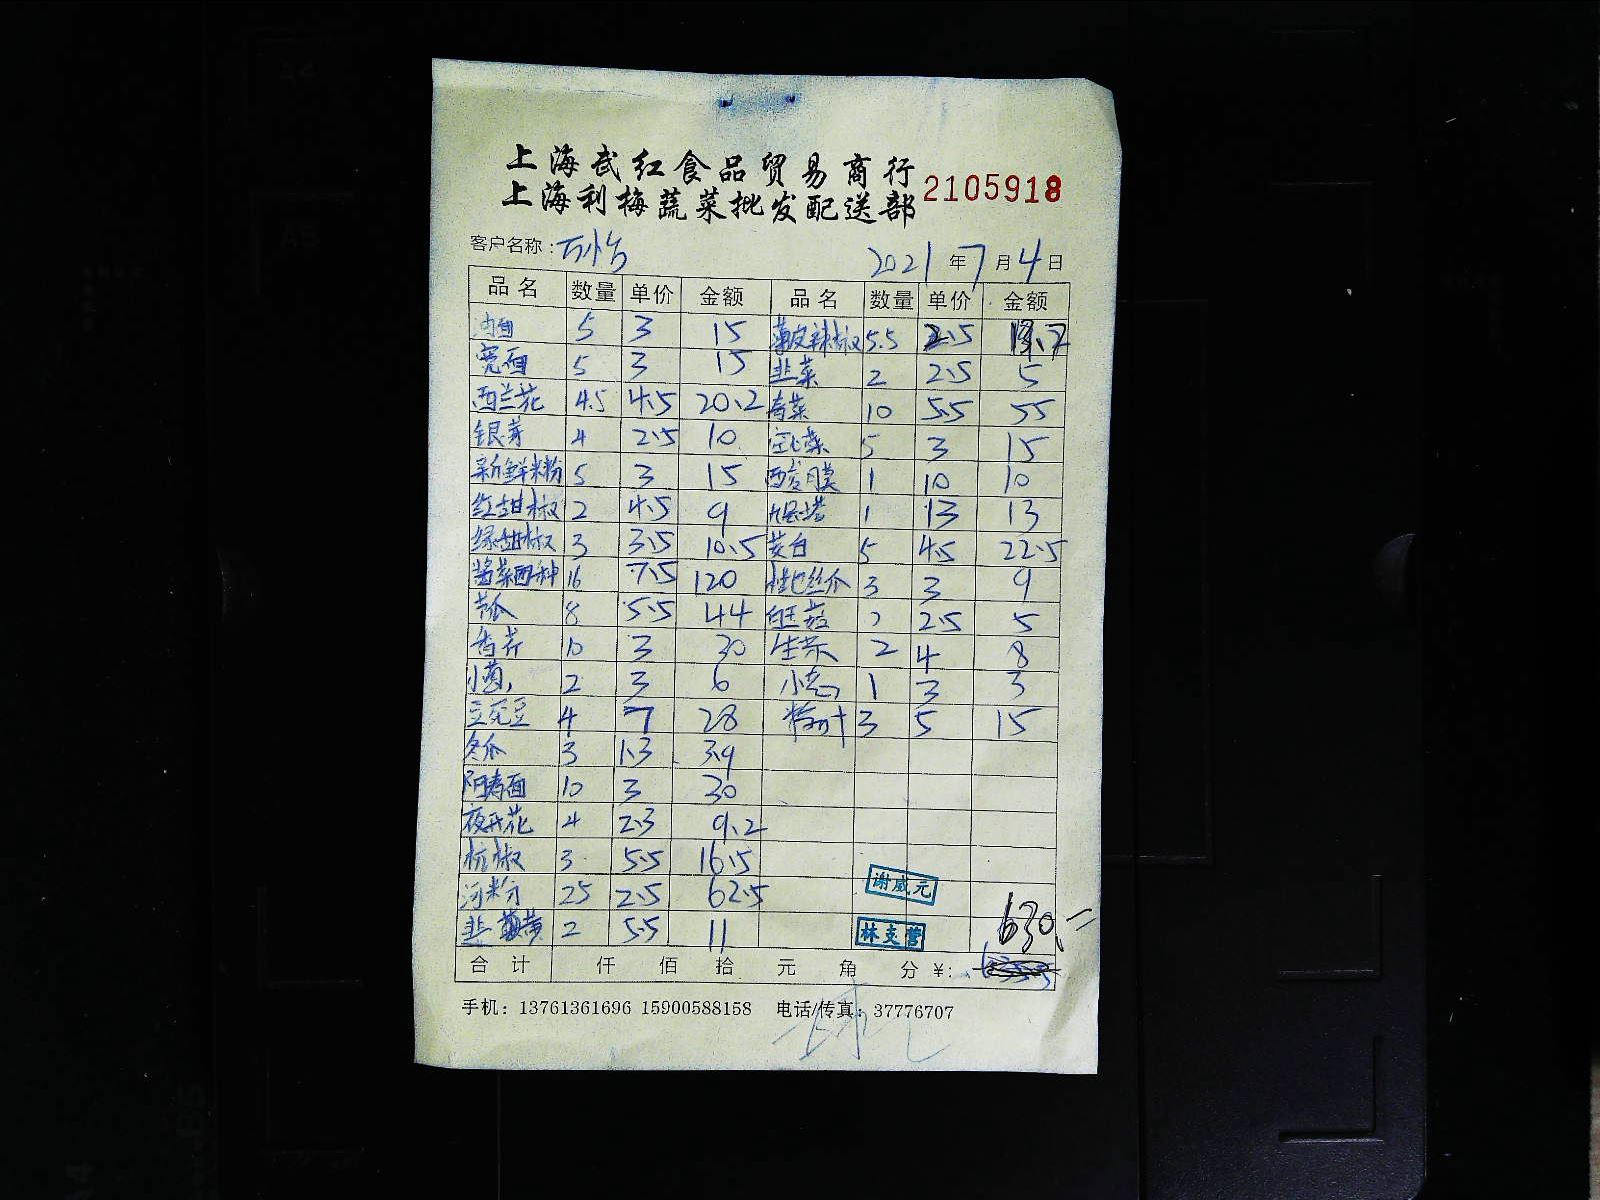 上海武红食品贸易商行
上海利梅蔬菜批发配送部 2105918
客户名称: 2021年7月4日
品名 数量 单价 金额 品名 数量 单价 金额
油面 5 3 15 薄皮辣椒 5.5 2.5 13.7
宽面 5 3 15 韭菜 2 2.5 5
西兰花 4.5 4.5 20.2 青菜 10 5.5 55
银芽 4 2.5 10 空心菜 5 3 15
新鲜米粉 5 3 15 1 10 10
红甜椒 2 4.5 9 九层塔 1 13 13
绿甜椒 3 3.5 10.5 茭白 5 4.5 22.5
酱菜四种 16 7.5 120 丝瓜 3 3 9
苦瓜 8 5.5 44 2 2.5 5
香芹 10 3 30 生菜 2 4 8
小葱 2 3 6 小 1 3 3
豆 4 7 28 3 5 15
冬瓜 3 1.3 3.9
阳春面 10 3 30
夜开花 4 2.3 9.2
杭椒 3 5.5 16.5
河粉 25 2.5 62.5 谢威元
韭黄 2 5.5 11 林支营 630.-
合计 仟 佰 拾 元 角 分 ¥:
手机: 13761361696 15900588158 电话/传真: 37776707